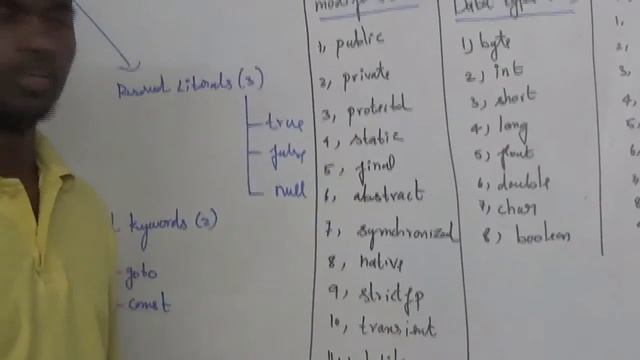 Reserved Literals (3)
true
false
null
keywords (2)
goto
const
1, public
2, private
3, protected
4, static
5, final
6, abstract
7, synchronized
8, native
9, strictfp
10, transient
Data type
1) byte
2) int
3) short
4) long
5) float
6) double
7) char
8) boolean
1.
2,
3,
4,
5,
6,